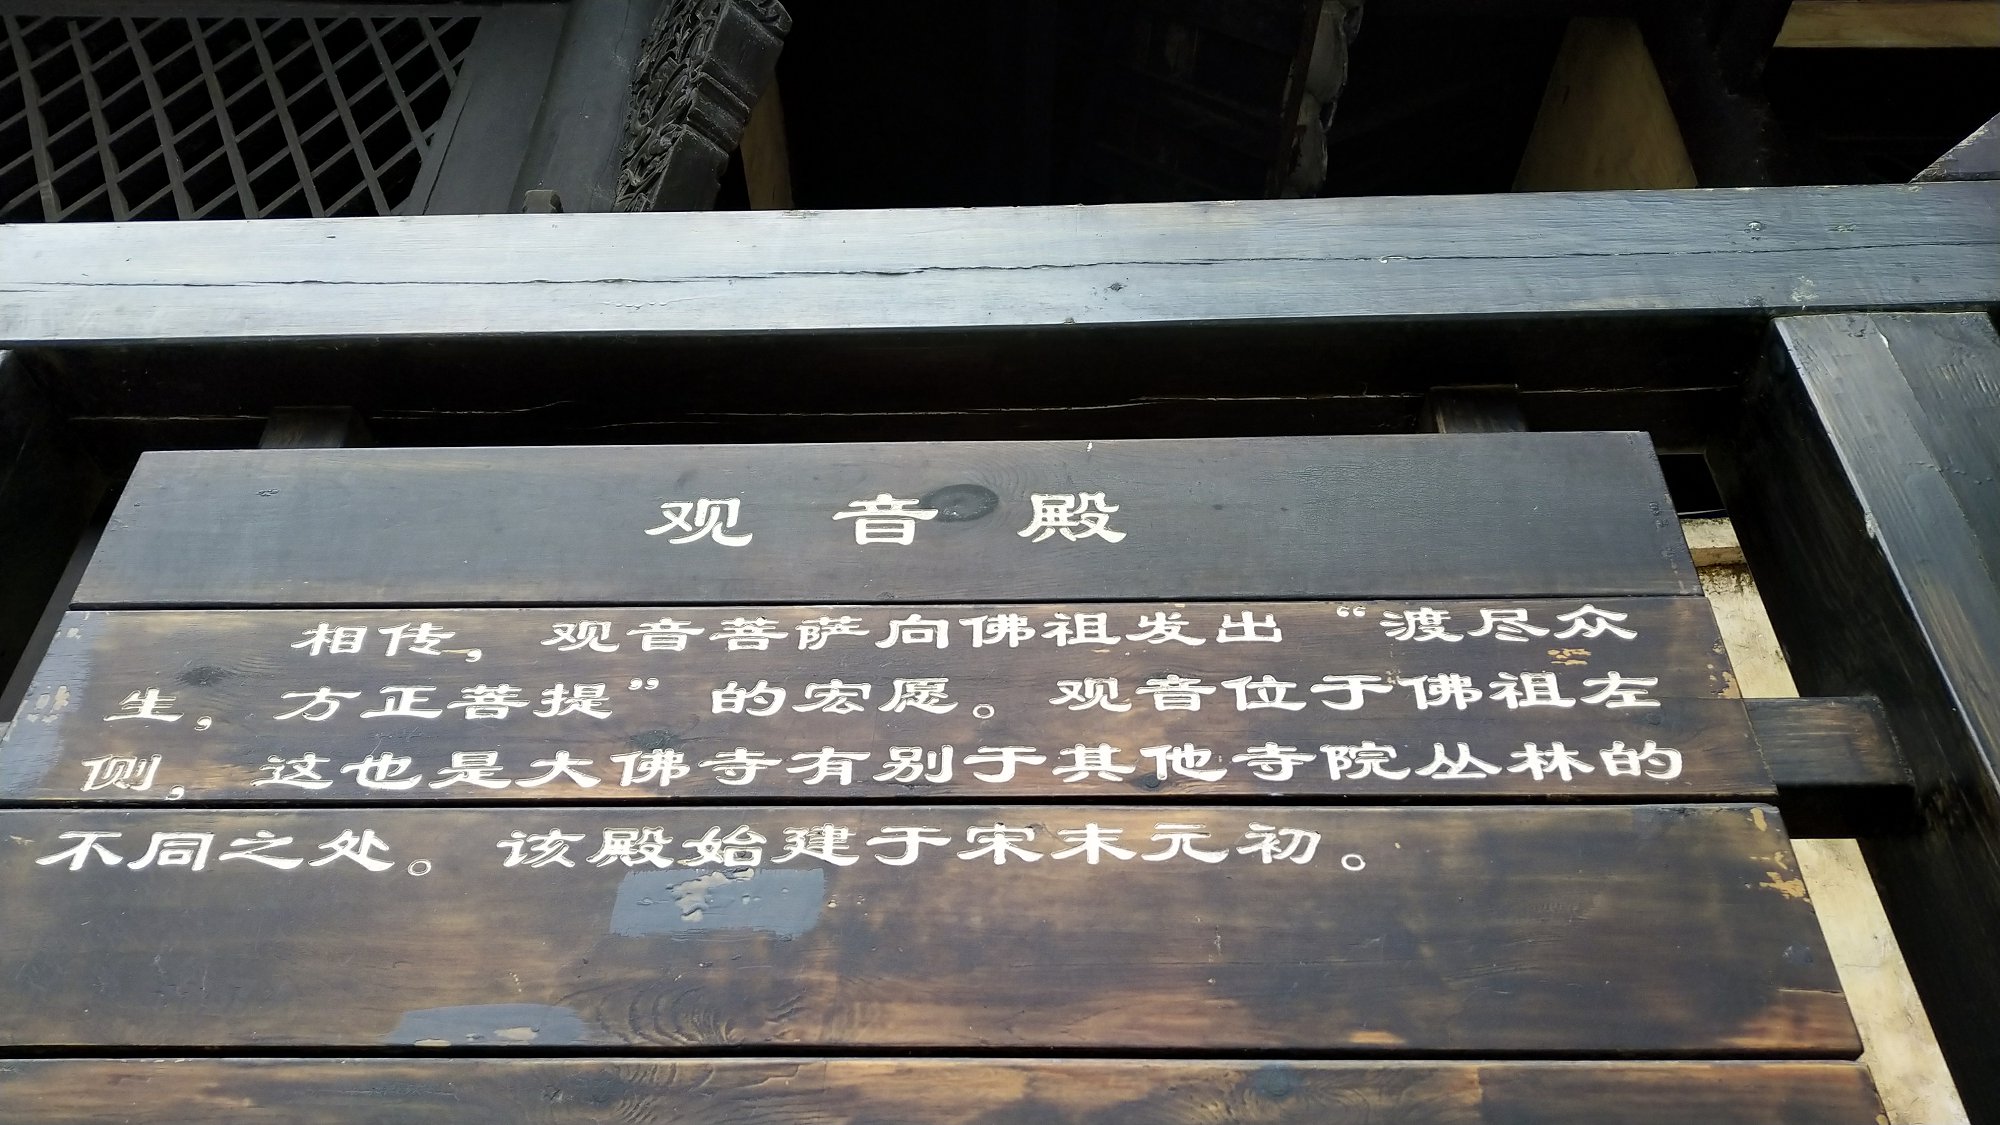 观音殿
相传，观音菩萨向佛祖发出“渡尽众
生，方正菩提”的宏愿。观音位于佛祖左
侧，这也是大佛寺有别于其他寺院丛林的
不同之处。该殿始建于宋末元初。